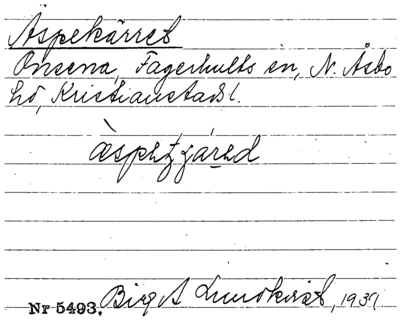 Äspekärret
Onsena, Fagerhults sn, N. Åsbo
hd, Kristianstads l.
Nr 5493. Birgit Lundkvist, 1937